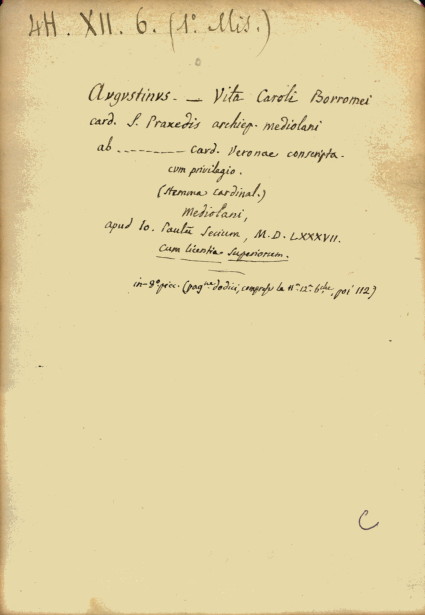 4H. XII. 6. (1º Mis.)
Avgvstinvs. — Vita Caroli Borromei
card. S. Praxedis archiep. mediolani
ab ---------- card. Veronae conscripta.
cvm privilegio.
(stemma cardinal.)
Mediolani,
apud Io. Paulū Seccium, M.D.LXXXVII.
Cum licentia Superiorum.
in-8º picc. (pag.ne dodici, comprese la 11ª 12ª b.che, poi 112)
C